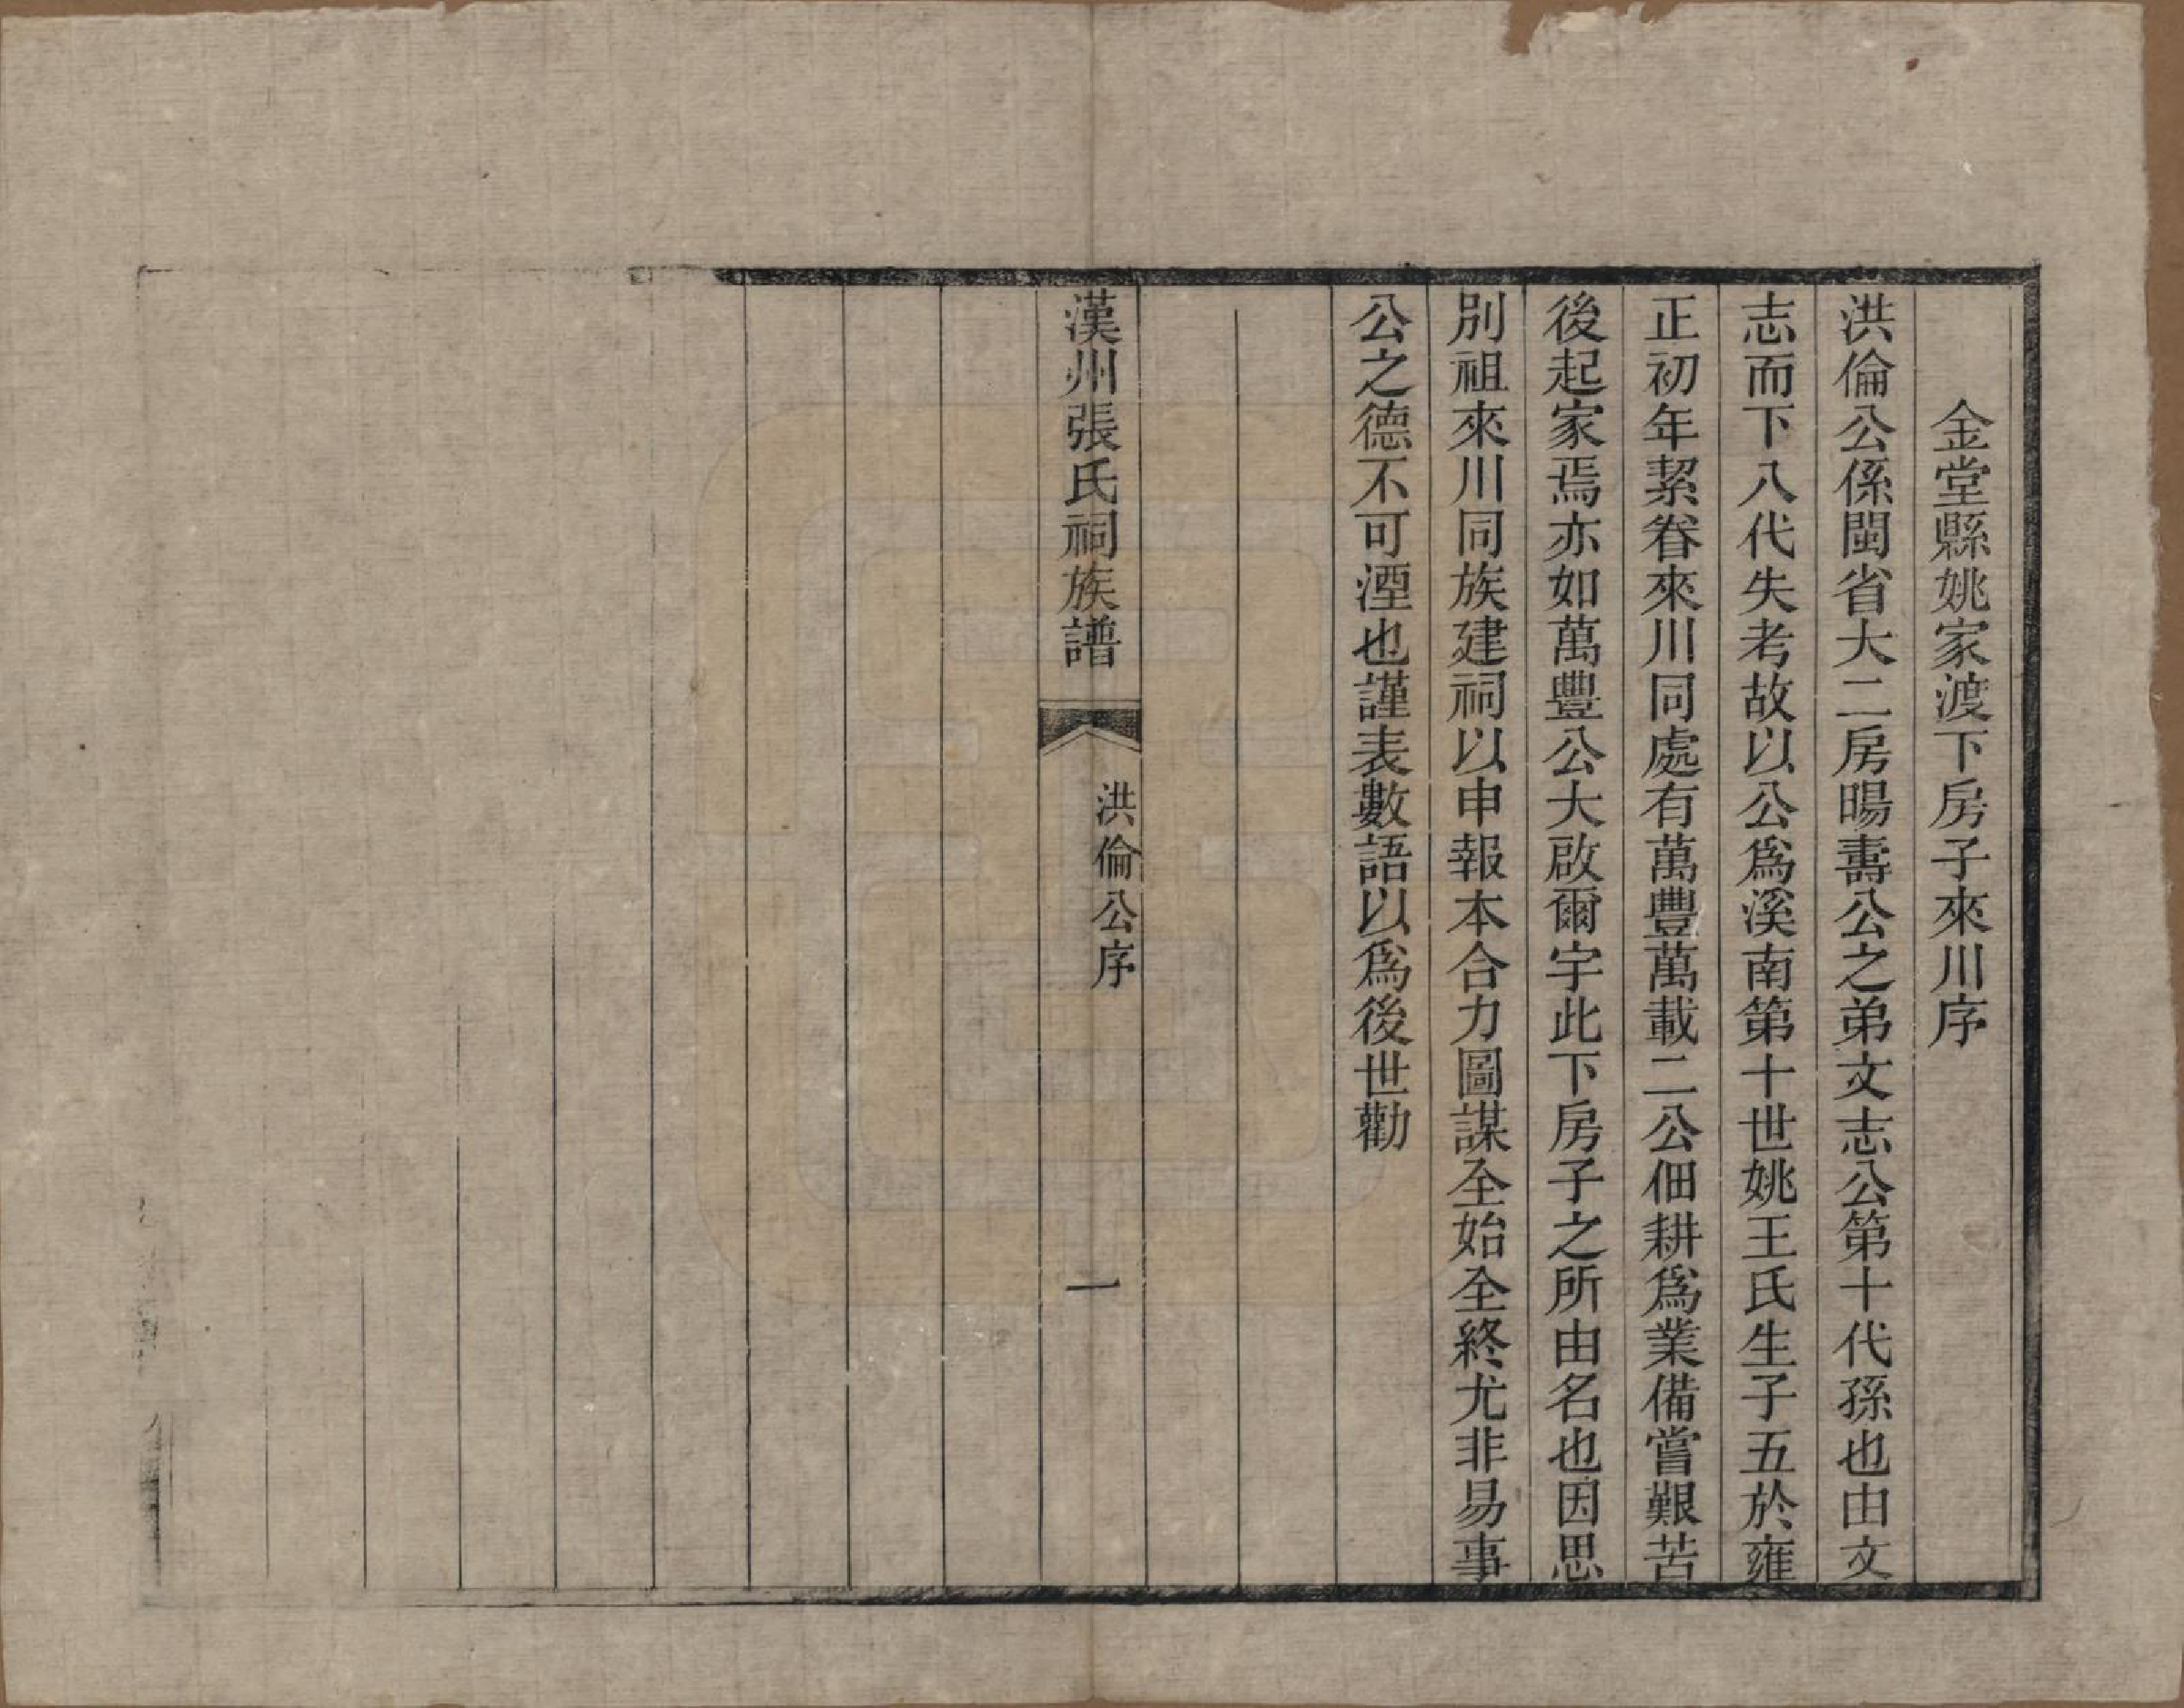 金堂縣姚家渡下房子來川序
洪倫公係閩省大二房暘壽公之弟文志公第十代孫也由文
志而下八代失考故以公爲溪南第十世姚王氏生子五於雍
正初年絜眷來川同處有萬豐萬載二公佃耕爲業備嘗艱苦
後起家焉亦如萬豐公大啟爾宇此下房子之所由名也因思
別祖來川同族建祠以申報本合力圖謀全始全終尤非易事
公之德不可湮也謹表數語以爲後世勸
漢州張氏祠族譜
洪倫公序
一